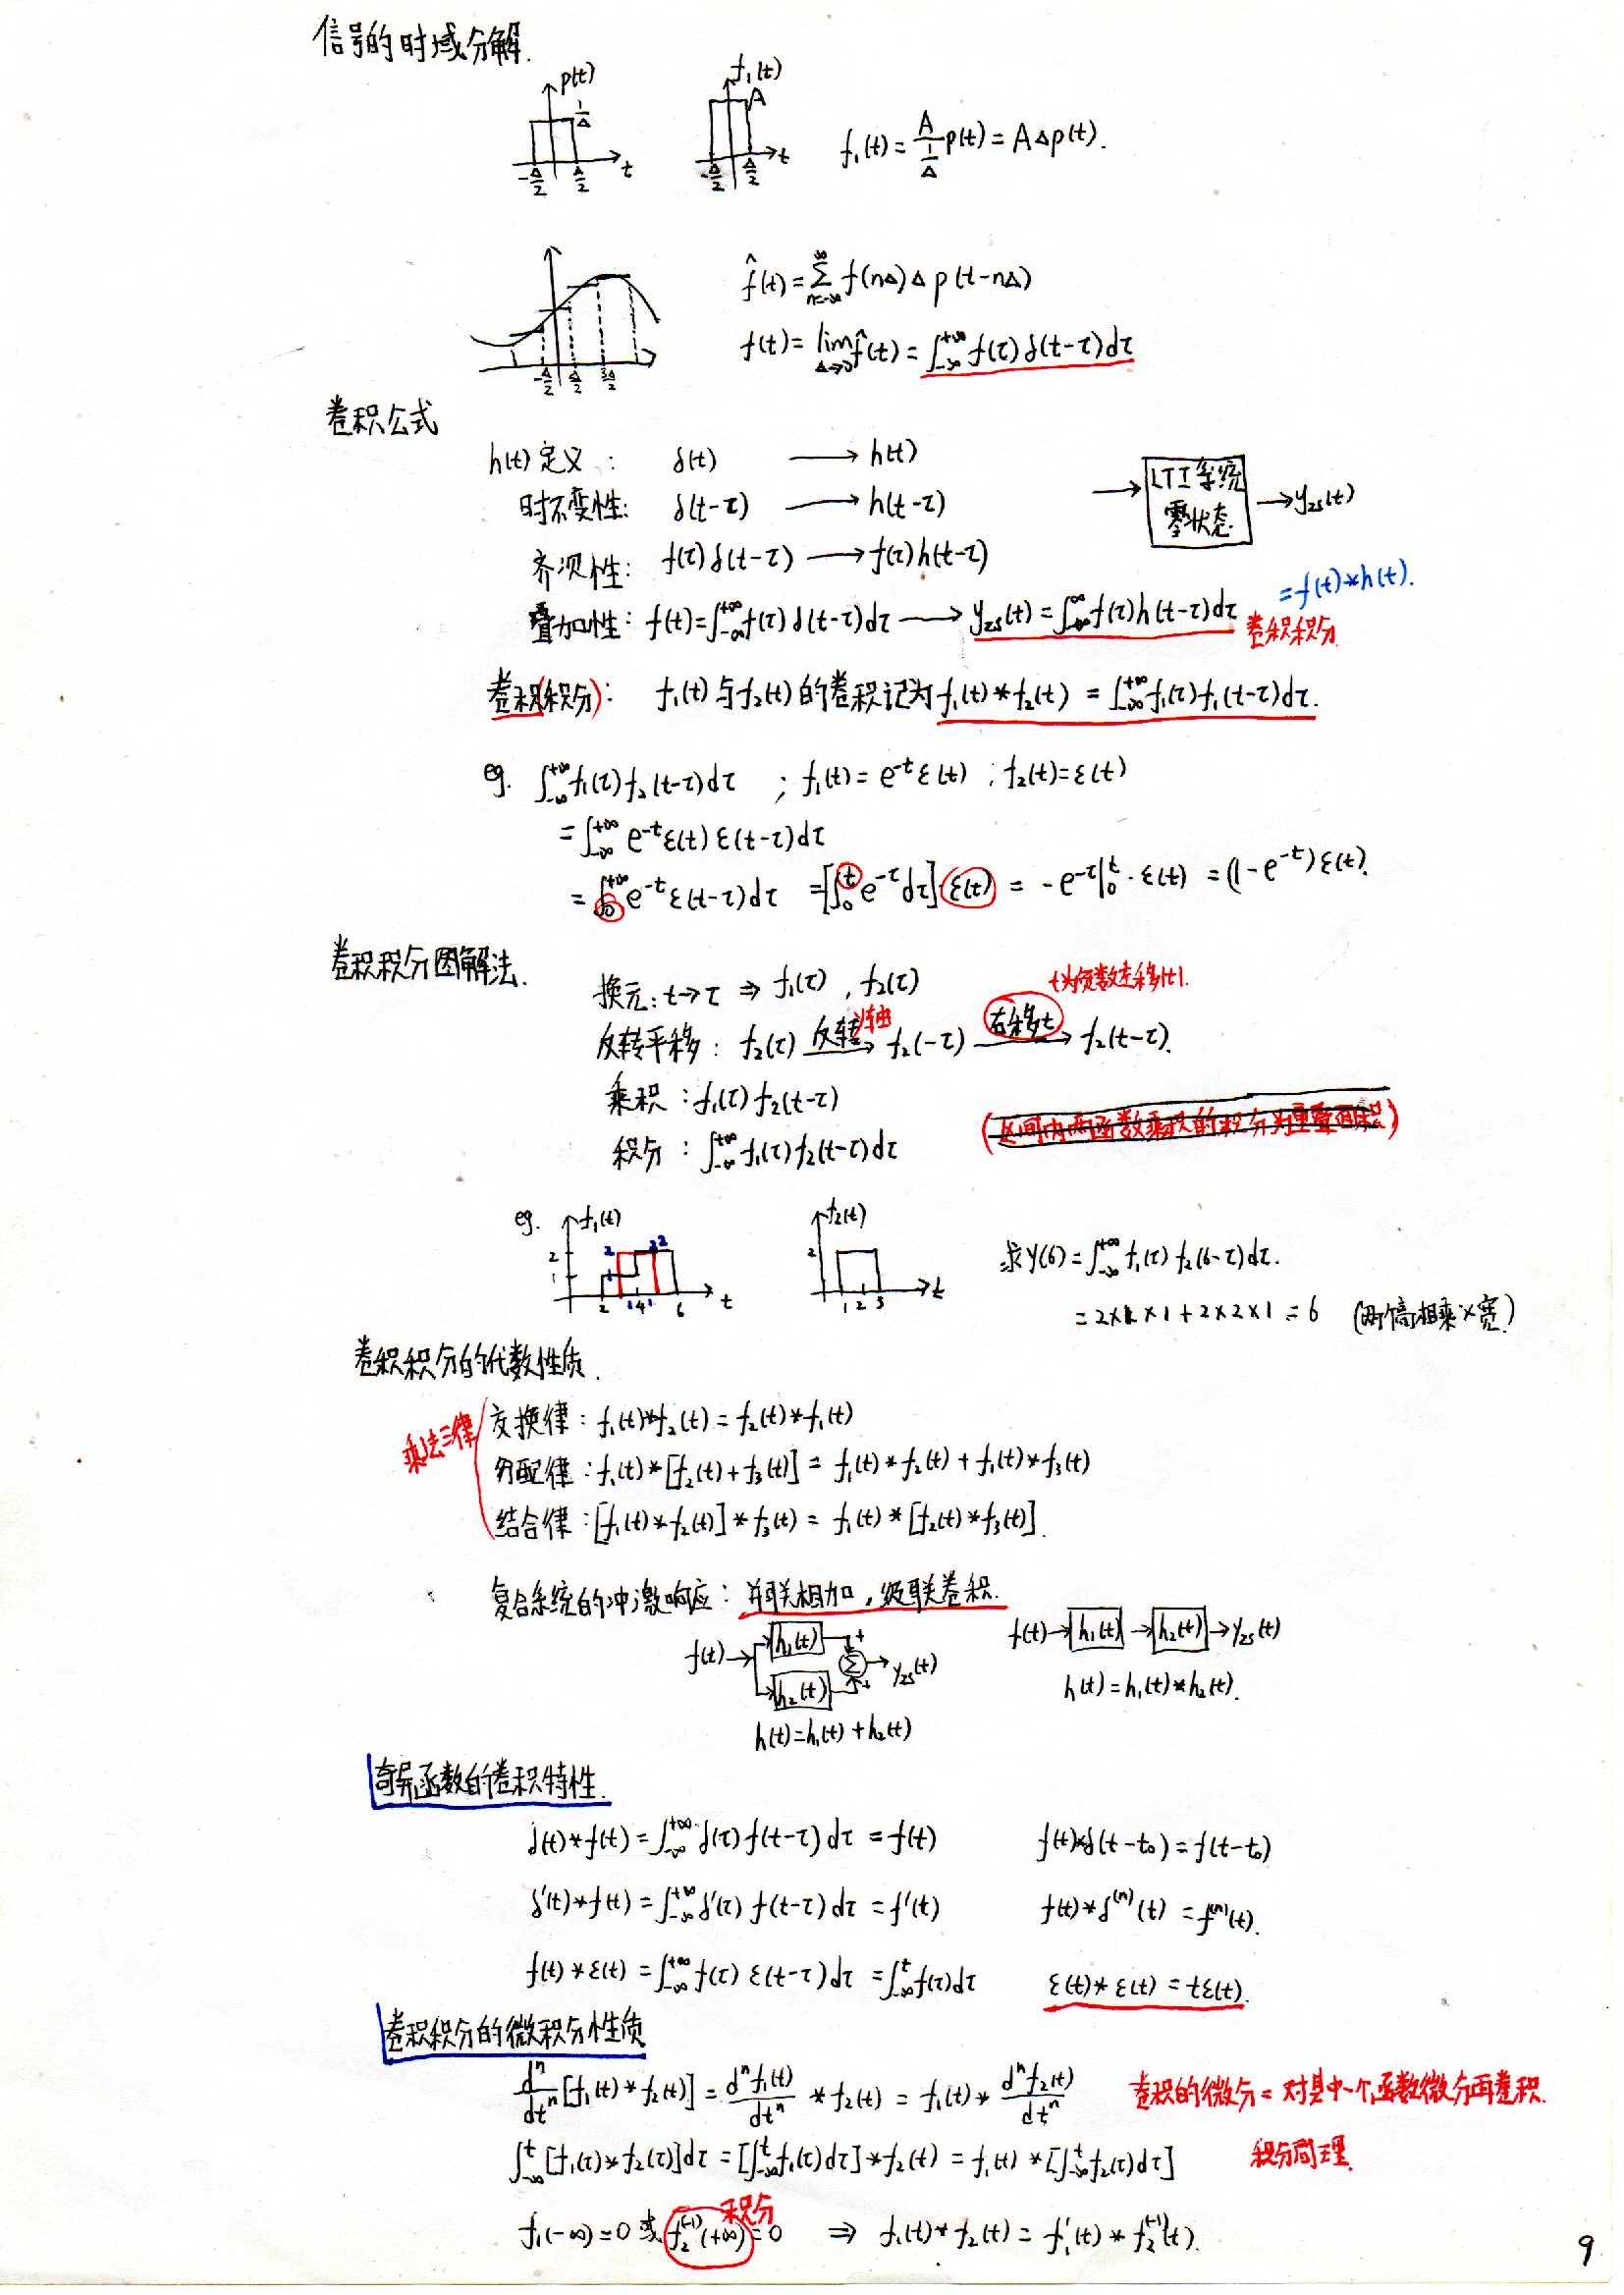 信号的时域分解.
p(t)
1/Δ
-Δ/2 Δ/2 t
f₁(t)
A
-Δ/2 Δ/2 t
f₁(t) = A/(1/Δ) p(t) = AΔp(t).
f̂(t) = ∑_{n=-∞}^{∞} f(nΔ)Δ p(t-nΔ)
f(t) = lim_{Δ→0} f̂(t) = ∫_{-∞}^{+∞} f(τ)δ(t-τ)dτ
-Δ/2 Δ/2 3Δ/2
卷积公式
h(t)定义: δ(t) ⟶ h(t)
时不变性: δ(t-τ) ⟶ h(t-τ)
LTI系统
零状态
→ y_zs(t)
齐次性: f(τ)δ(t-τ) ⟶ f(τ)h(t-τ)
叠加性: f(t)=∫_{-∞}^{+∞} f(τ)δ(t-τ)dτ ⟶ y_zs(t) = ∫_{-∞}^{∞} f(τ)h(t-τ)dτ
= f(t)*h(t).
卷积积分
卷积(积分): f₁(t)与f₂(t)的卷积记为f₁(t)*f₂(t) = ∫_{-∞}^{+∞} f₁(τ)f₁(t-τ)dτ.
eg. ∫_{-∞}^{+∞} f₁(τ)f₂(t-τ)dτ ; f₁(t) = e^{-t}ε(t) ; f₂(t)=ε(t)
= ∫_{-∞}^{+∞} e^{-t}ε(t)ε(t-τ)dτ
= ∫_0^{+∞} e^{-t}ε(t-τ)dτ = [∫_0^t e^{-τ}dτ]·ε(t) = -e^{-τ}|_0^t · ε(t) = (1-e^{-t})ε(t).
卷积积分图解法.
换元: t→τ ⇒ f₁(τ), f₂(τ)
t为负数左移|t|.
反转平移: f₂(τ) 反转 y轴 → f₂(-τ) 右移t → f₂(t-τ).
乘积: f₁(τ)f₂(t-τ)
(区间内两函数乘积的积分为重叠面积)
积分: ∫_{-∞}^{+∞} f₁(τ)f₂(t-τ)dτ
eg. f₁(t)
2 1
2 4 6 t
f₂(t)
2
1 2 3 t
求y(6) = ∫_{-∞}^{+∞} f₁(τ)f₂(6-τ)dτ.
= 2×1×1+2×2×1 = 6 (两高相乘×宽)
卷积积分的代数性质.
乘法三律
交换律: f₁(t)*f₂(t) = f₂(t)*f₁(t)
分配律: f₁(t)*[f₂(t)+f₃(t)] = f₁(t)*f₂(t)+f₁(t)*f₃(t)
结合律: [f₁(t)*f₂(t)]*f₃(t) = f₁(t)*[f₂(t)*f₃(t)].
复合系统的冲激响应: 并联相加, 级联卷积.
f(t) → h₁(t) h₂(t) + + Σ → y_zs(t)
h(t)=h₁(t)+h₂(t)
f(t) → h₁(t) → h₂(t) → y_zs(t)
h(t)=h₁(t)*h₂(t).
奇异函数的卷积特性.
δ(t)*f(t) = ∫_{-∞}^{+∞} δ(τ)f(t-τ)dτ = f(t) f(t)*δ(t-t₀) = f(t-t₀)
δ'(t)*f(t) = ∫_{-∞}^{+∞} δ'(τ)f(t-τ)dτ = f'(t) f(t)*δ⁽ⁿ⁾(t) = f⁽ⁿ⁾(t).
f(t)*ε(t) = ∫_{-∞}^{+∞} f(τ)ε(t-τ)dτ = ∫_{-∞}^{t} f(τ)dτ ε(t)*ε(t) = tε(t).
卷积积分的微积分性质
dⁿ/dtⁿ [f₁(t)*f₂(t)] = dⁿf₁(t)/dtⁿ * f₂(t) = f₁(t) * dⁿf₂(t)/dtⁿ 卷积的微分=对其中一个函数微分再卷积.
∫_{-∞}^{t} [f₁(τ)*f₂(τ)]dτ = [∫_{-∞}^{t} f₁(τ)dτ]*f₂(t) = f₁(t)*[∫_{-∞}^{t} f₂(τ)dτ] 积分同理.
积分
f₁(-∞)=0 或 f₂⁽⁻¹⁾(+∞)=0 ⇒ f₁(t)*f₂(t) = f₁'(t)*f₂⁽⁻¹⁾(t).
9